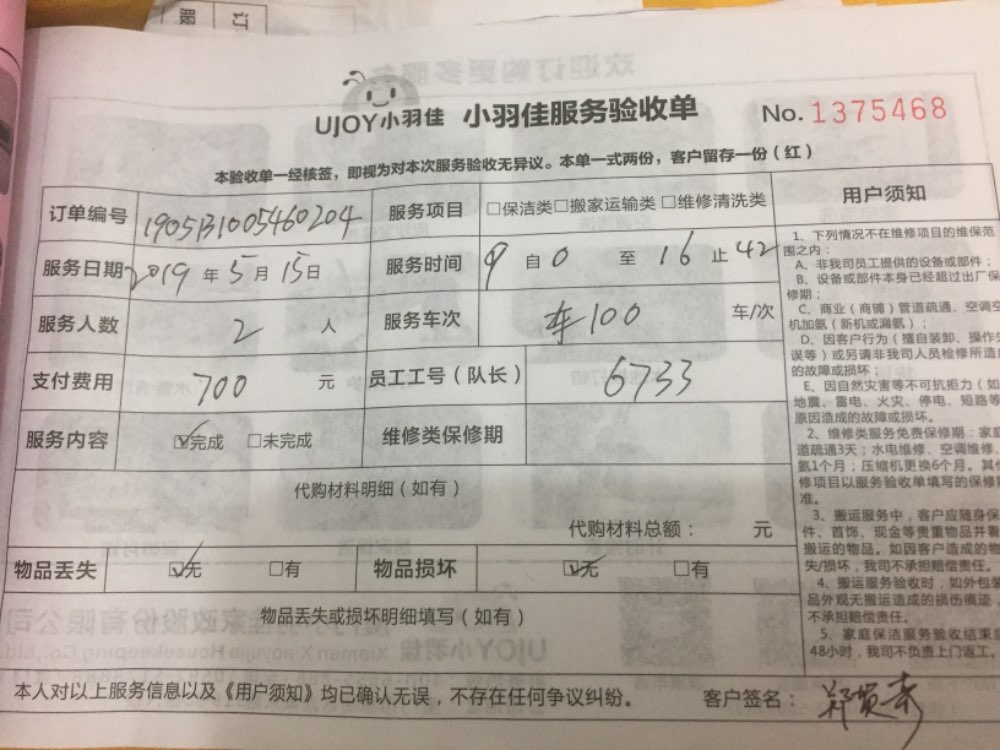 UJOY小羽佳 小羽佳服务验收单 No. 1375468
本验收单一经核签，即视为对本次服务验收无异议。本单一式两份，客户留存一份（红）
订单编号 1905131005460204 服务项目 □保洁类□搬家运输类□维修清洗类
服务日期 2019年5月15日 服务时间 9 自 0 至 16 止 42
服务人数 2 人 服务车次 车100 车/次
支付费用 700 元 员工工号（队长） 6733
服务内容 ☑完成 □未完成 维修类保修期
代购材料明细（如有）
代购材料总额： 元
物品丢失 ☑无 □有 物品损坏 ☑无 □有
物品丢失或损坏明细填写（如有）
本人对以上服务信息以及《用户须知》均已确认无误，不存在任何争议纠纷。 客户签名：
用户须知
1、下列情况不在维修项目的维保范
围之内：
A、非我司员工提供的设备或部件；
B、设备或部件本身已经超过出厂保
修期；
C、商业（商铺）管道疏通、空调空
机加氨（新机或漏氨）；
D、因客户行为（擅自装卸、操作失
误等）或另请非我司人员检修所造
的故障或损坏；
E、因自然灾害等不可抗拒力（如
地震、雷电、火灾、停电、短路等
原因造成的故障或损坏。
2、维修类服务免费保修期：家庭
道疏通3天；水电维修、空调维修、
氨1个月；压缩机更换6个月。其他
修项目以服务验收单填写的保修期
准。
3、搬运服务中，客户应随身保
件、首饰、现金等贵重物品并看
搬运的物品。如因客户造成的物
失/损坏，我司不承担赔偿责任。
4、搬运服务验收时，如外包装
品外观无搬运造成的损伤痕迹，
不承担赔偿责任。
5、家庭保洁服务验收结束后
48小时，我司不负责上门返工。